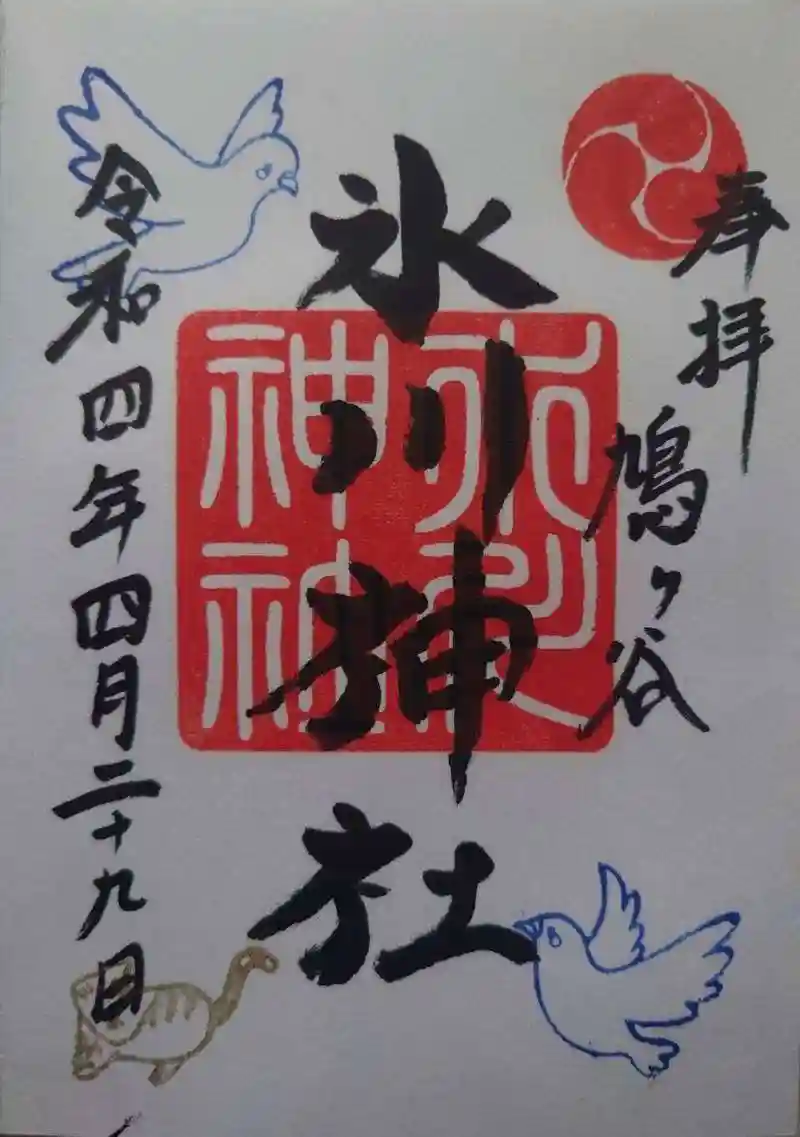 奉拝
鳩ヶ谷
氷川神社
氷川
神社
令和四年四月二十九日